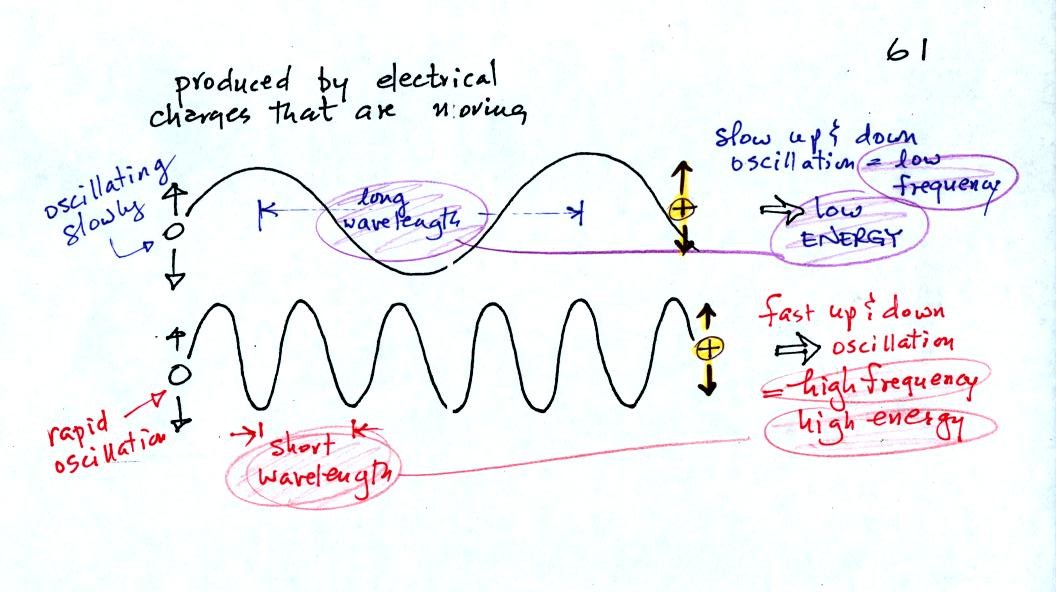 61
produced by electrical
charges that are moving
slow up & down
oscillation = low
frequency
oscillating
slowly
long
wavelength
low
ENERGY
fast up & down
oscillation
= high frequency
high energy
rapid
oscillation
short
wavelength